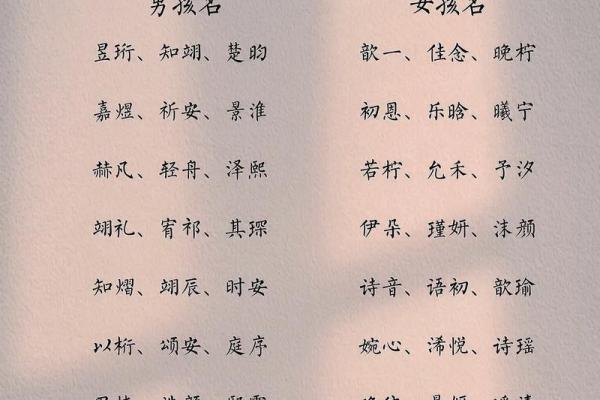 男孩名 女孩名
昱珩、知翊、楚昀 歆一、佳念、晚柠
嘉煜、祈安、景淮 初恩、乐晗、曦宁
赫凡、轻舟、泽熙 若柠、允禾、予汐
翊礼、宥祁、其琛 伊朵、瑾妍、沫颜
知熠、翊辰、时安 诗音、语初、歆瑜
以桁、颂安、庭序 婉心、浠悦、诗瑶